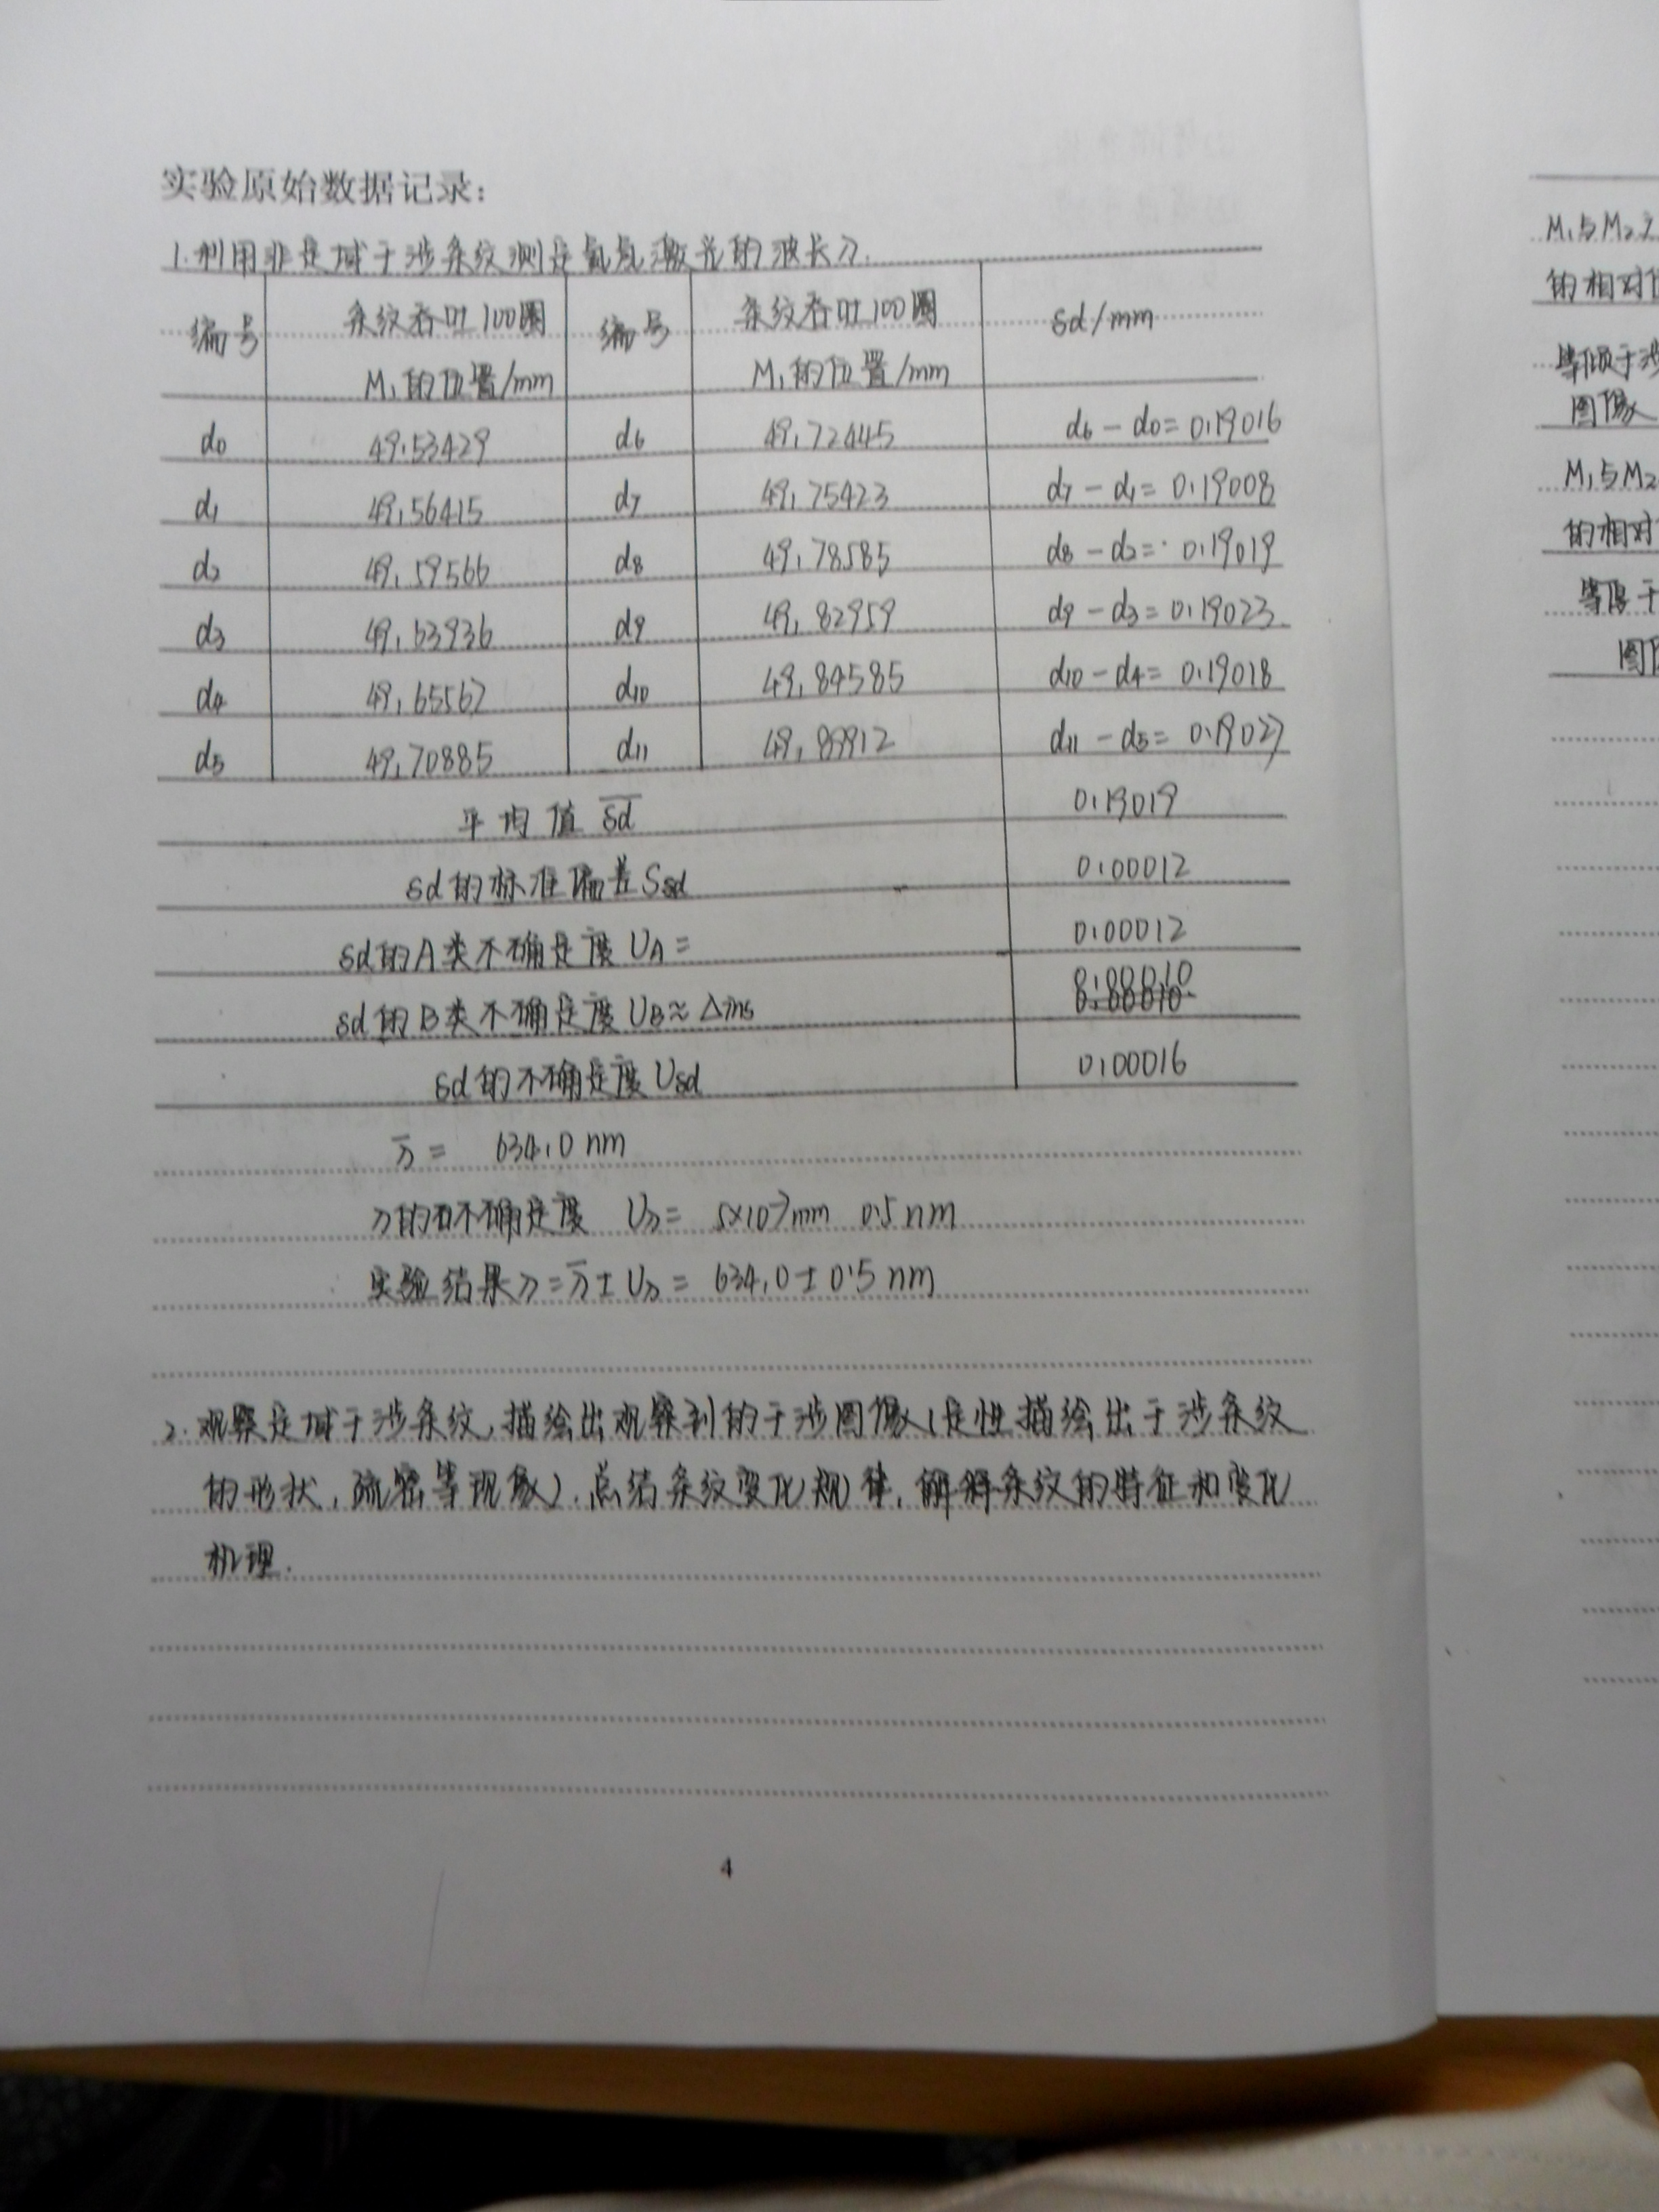 实验原始数据记录：
1.利用非定域干涉条纹测定氦氖激光的波长λ.
编号 条纹吞吐100圈 M₁的位置/mm 编号 条纹吞吐100圈 M₁的位置/mm δd/mm
d₀ 49.53429 d₆ 49.72445 d₆-d₀=0.19016
d₁ 49.56415 d₇ 49.75423 d₇-d₁=0.19008
d₂ 49.59566 d₈ 49.78585 d₈-d₂=0.19019
d₃ 49.63936 d₉ 49.82959 d₉-d₃=0.19023
d₄ 49.65567 d₁₀ 49.84585 d₁₀-d₄=0.19018
d₅ 49.70885 d₁₁ 49.89912 d₁₁-d₅=0.19027
平均值 δd 0.19019
δd的标准偏差Sδd 0.00012
δd的A类不确定度 UA= 0.00012
δd的B类不确定度 UB≈Δins 0.00010
δd的不确定度 Uδd 0.00016
λ̄= 634.0 nm
λ的不确定度 Uλ= 5×10⁻⁷mm 0.5nm
实验结果λ=λ̄±Uλ=634.0±0.5nm
2.观察定域干涉条纹,描绘出观察到的干涉图像(定性描绘出干涉条纹
的形状,疏密等现象).总结条纹变化规律,解释条纹的特征和变化
机理.
4
M₁与M₂
的相对
等倾干涉
图像
M₁与M₂
的相对
等厚干